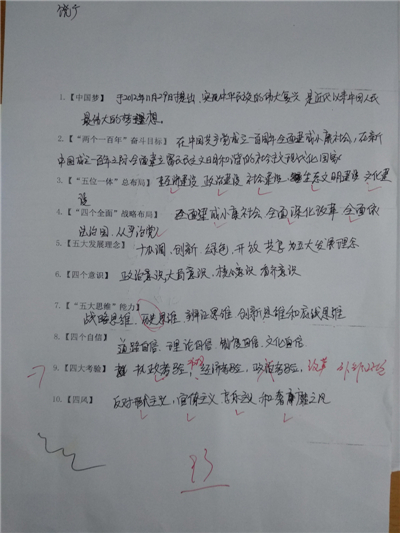 1.【中国梦】 于2012年11月29日提出,实现中华民族的伟大复兴 是近代以来中国人民
最伟大的梦想。
2.【“两个一百年”奋斗目标】 在中国共产党成立一百周年全面建成小康社会,在新
中国成立一百年之时全面建立富强民主文明和谐的社会主义现代化国家
3.【“五位一体”总布局】 经济建设 政治建设 社会建设 生态文明建设 文化建
设
4.【“四个全面”战略布局】 全面建成小康社会 全面深化改革 全面依
法治国、从严治党
5.【五大发展理念】 协调、创新、绿色、开放 共享为五大发展理念
6.【四个意识】 政治意识 大局意识、核心意识 看齐意识
7.【“五大思维”能力】
战略思维、历史思维、辩证思维、创新思维和底线思维
8.【四个自信】
道路自信、理论自信、制度自信、文化自信
9.【四大考验】 执政考验、经济考验,政治考验, 改革
10.【四风】 反对形式主义,官僚主义 享乐主义 和奢靡之风
93